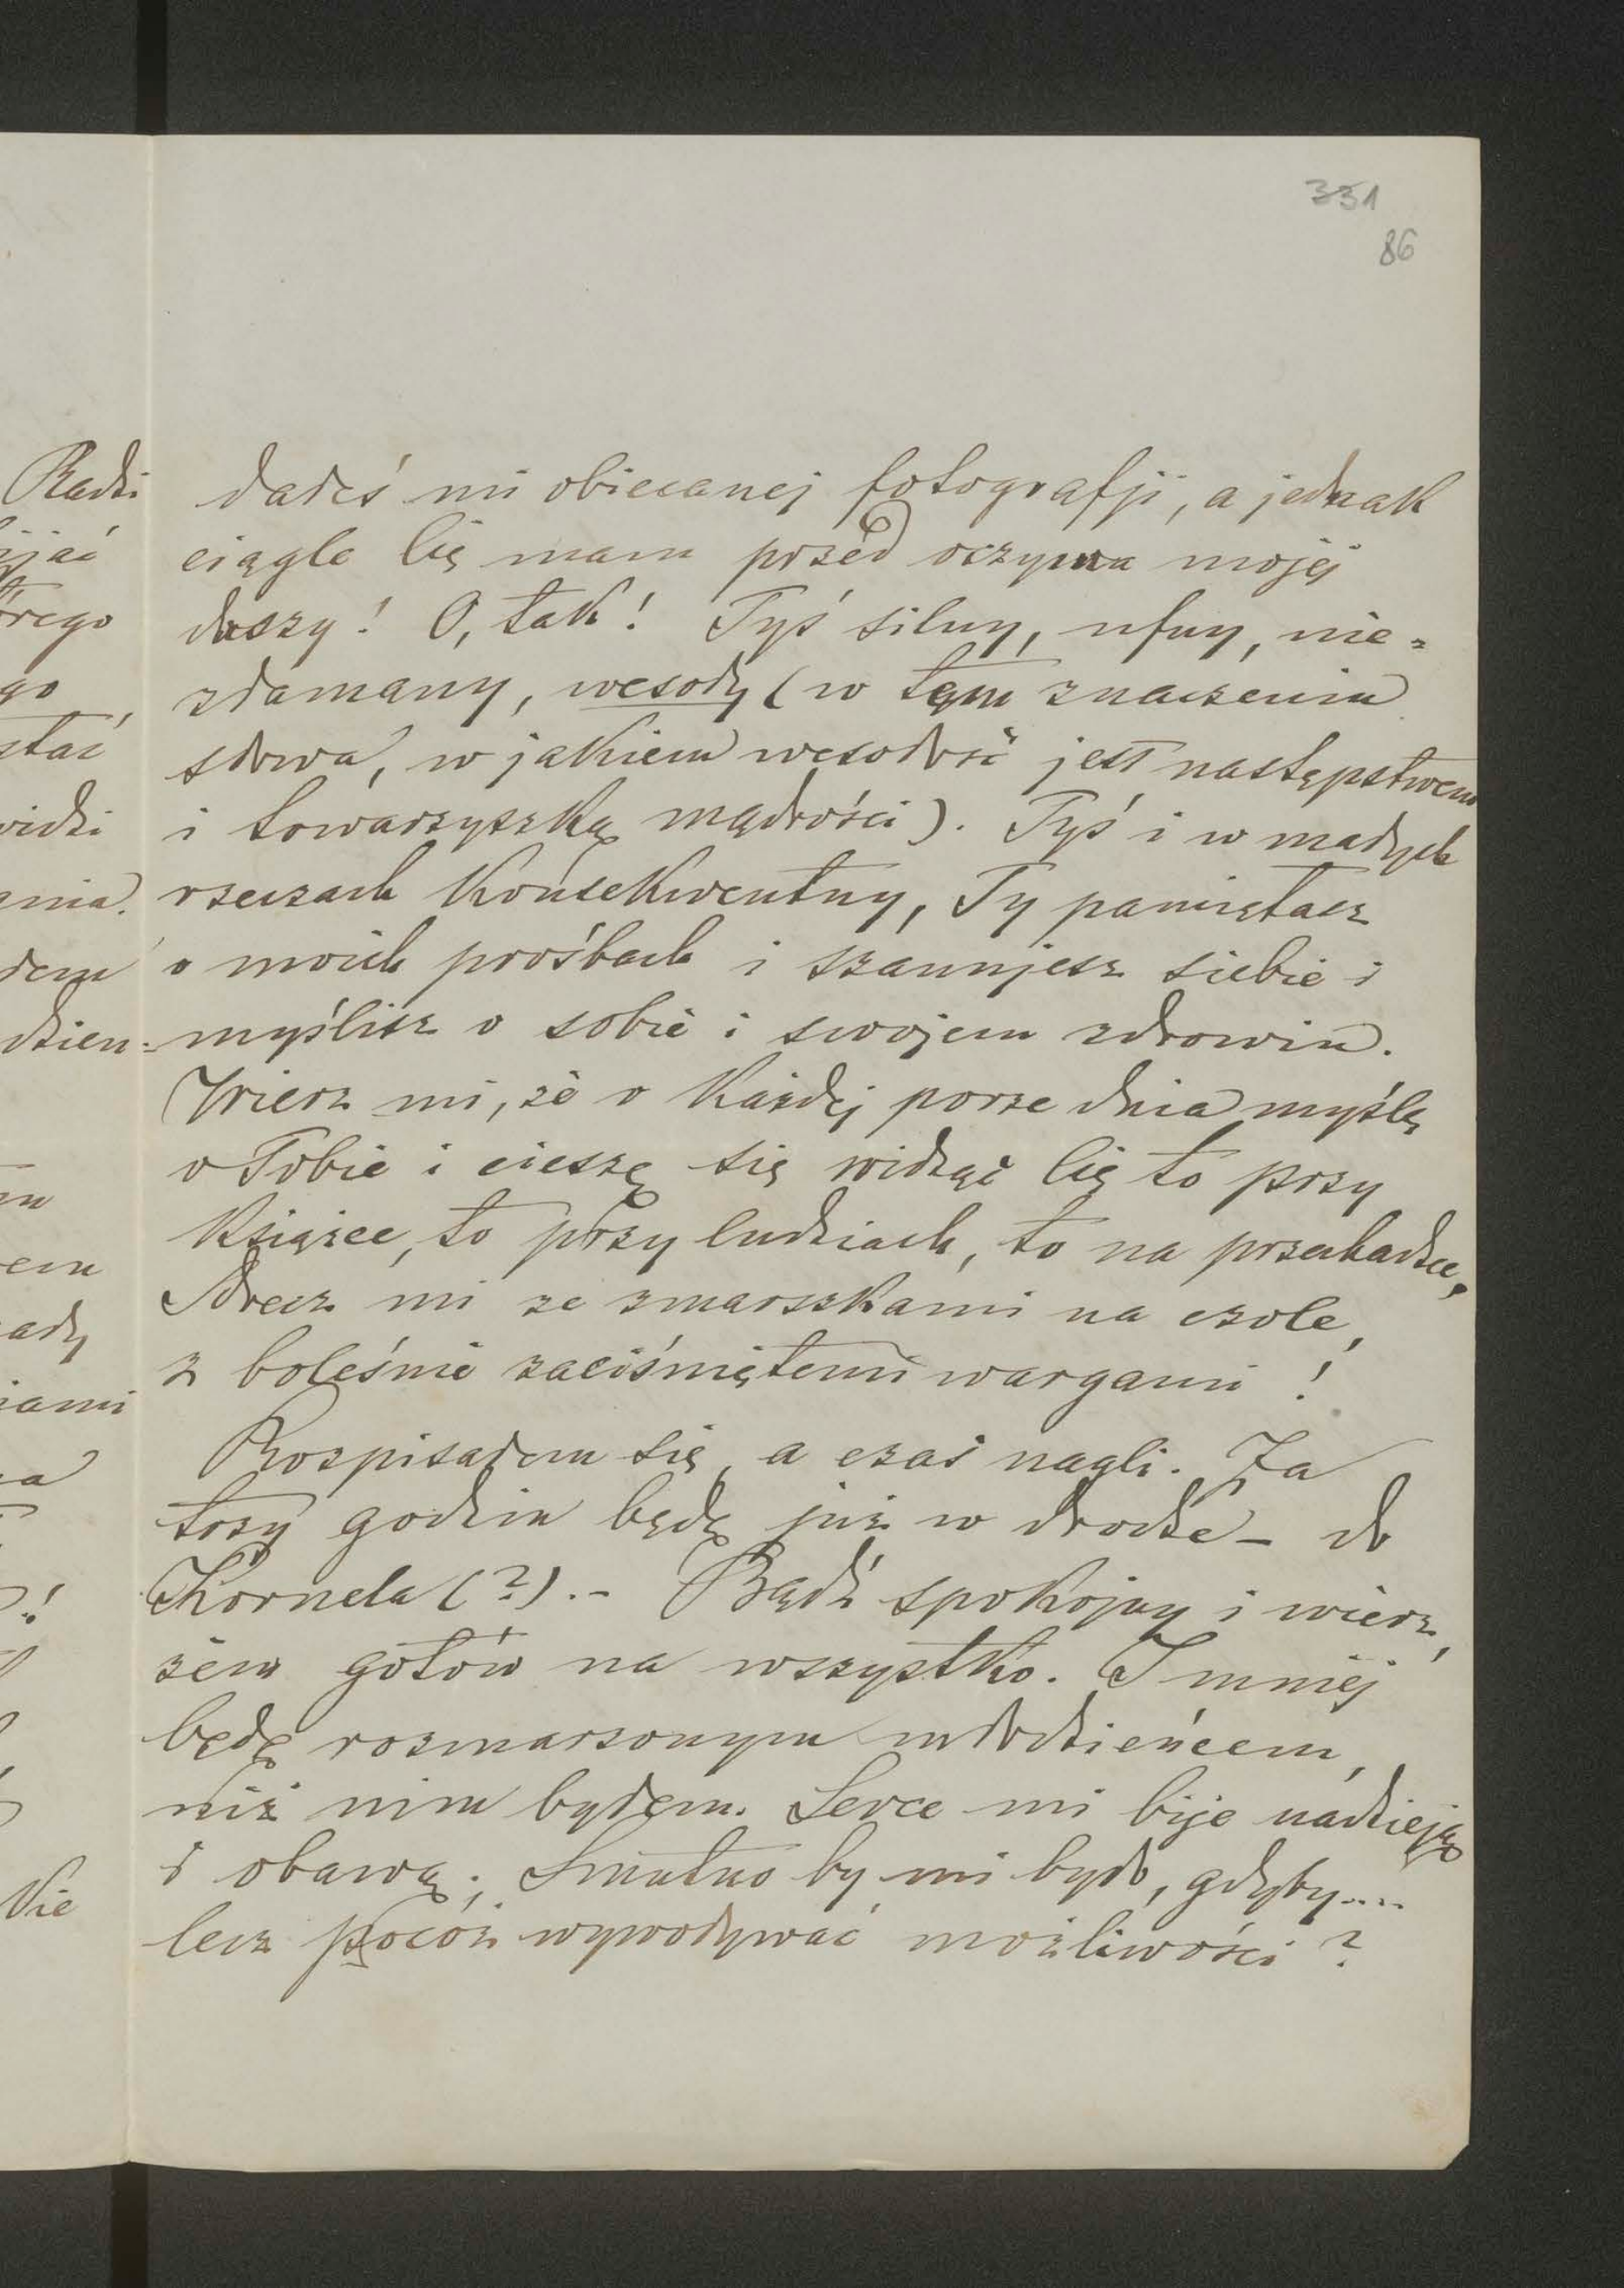 331
86
dałeś mi obiecanej fotografji, a jednak
ciągle Cię mam przed oczyma mojej
duszy! O, tak! Tyś silny, ufny, nie-
złamany, wesoły (w tem znaczeniu
słowa, w jakiem wesołość jest następstwem
i towarzyszką mądrości). Tyś i w małych
rzeczach konsekwentny, Ty pamiętasz
o moich prośbach i szanujesz siebie i
myślisz o sobie i swojem zdrowiu.
Wierz mi, że o każdej porze dnia myślę
o Tobie i cieszę się widząc Cię to przy
książce, to przy ludziach, to na przechadzce,
Precz mi ze zmarszkami na czole,
z boleśnie zaciśniętemi wargami!
Rozpisałem się, a czas nagli. Za
trzy godzin będę już w drodze – do
Kornela (?). – Bądź spokojny i wierz,
żem gotów na wszystko. I mniej
będę rozmarzonym młodzieńcem,
niż nim byłem. Serce mi bije nadzieją
i obawą; Smutno by mi było, gdyby....
lecz pocóż wywoływać możliwości?
Radzi
órego
go
stać
widzi
ania.
łem
dzien-
iami
Nie